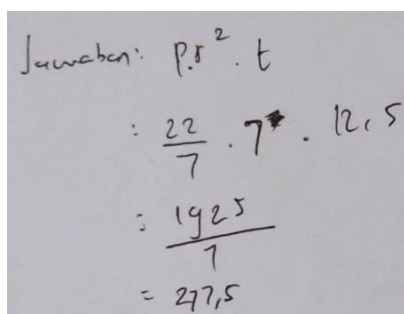 Jawaban: p.r² . t
: 22/7 . 7 . 12,5
: 1925/7
= 277,5